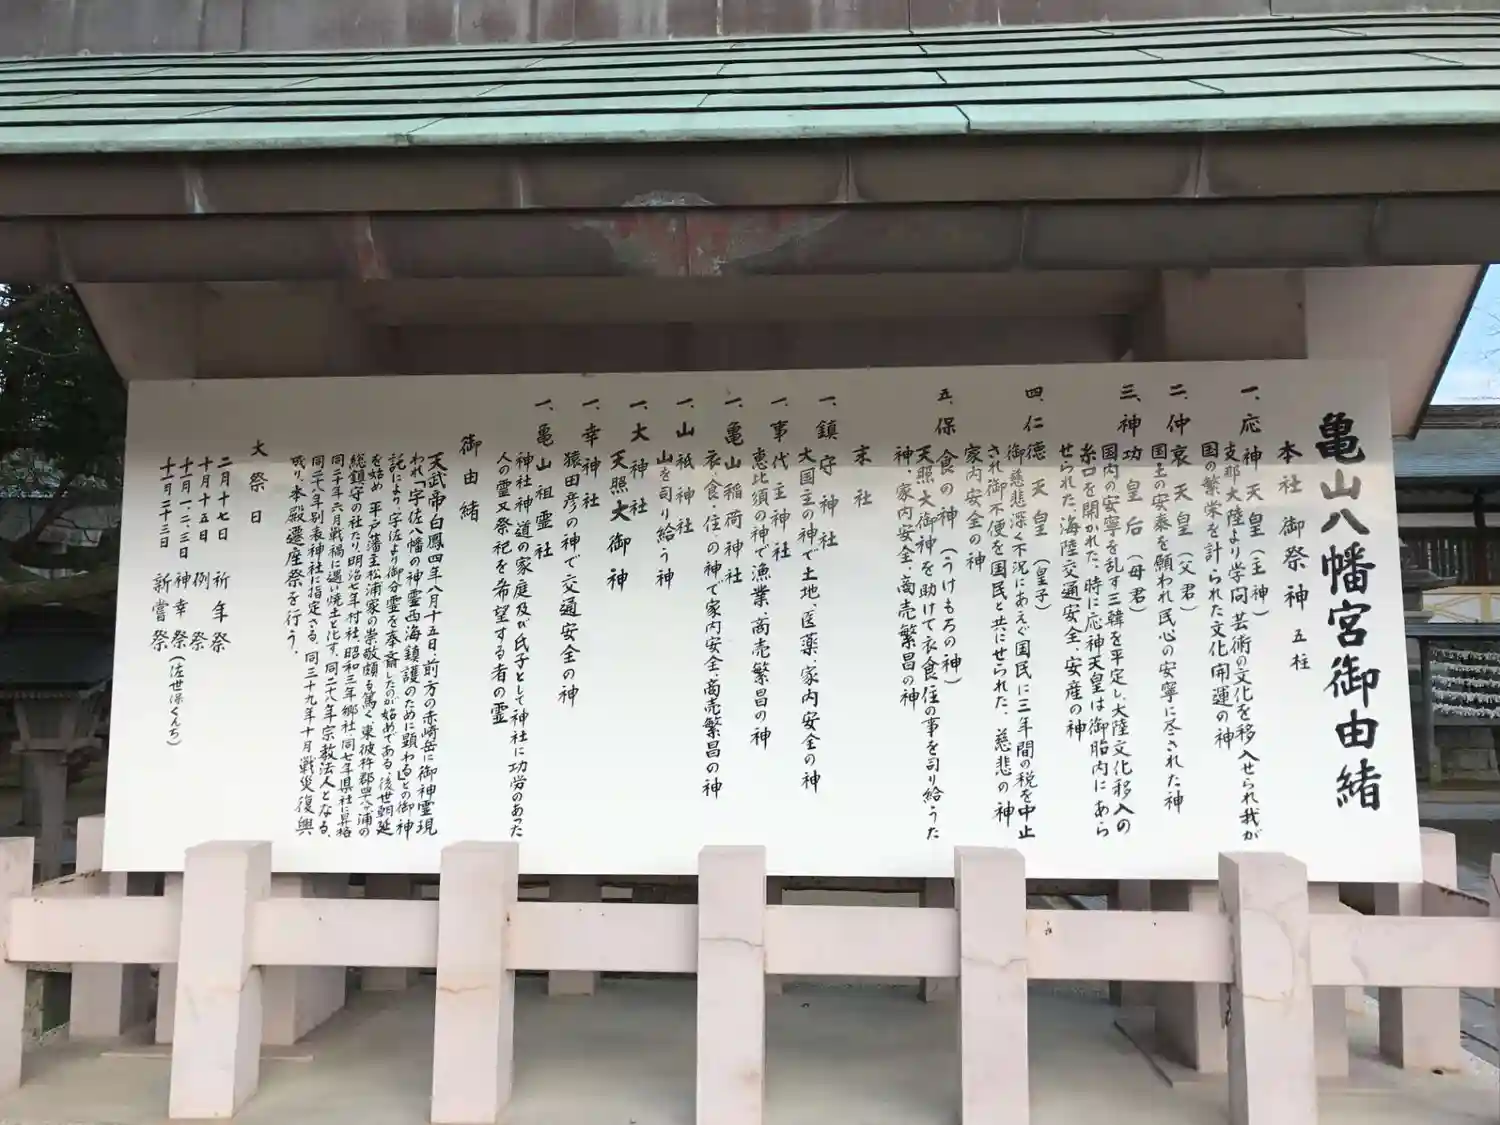 亀山八幡宮御由緒
本社 御祭神 五柱
一、応神天皇(主神)
支那大陸より学問、芸術の文化を移入せられ我が
国の繁栄を計られた文化、開運の神
二、仲哀天皇(父君)
国土の安泰を願われ民心の安寧に尽された神
三、神功皇后(母君)
国内の安寧を乱す三韓を平定し、大陸文化移入の
糸口を開かれた、時に応神天皇は御胎内にあら
せられた、海陸交通安全、安産の神
四、仁徳天皇(皇子)
御慈悲深く不況にあえぐ国民に三年間の税を中止
され御不便を国民と共にせられた、慈悲の神
家内安全の神
五、保食の神(うけもちの神)
天照大御神を助けて衣食住の事を司り給うた
神、家内安全、商売繁昌の神
末社
一、鎮守神社
大国主の神で土地、医薬、家内安全の神
一、事代主神社
恵比須の神で漁業、商売繁昌の神
一、亀山稲荷神社
衣・食・住の神で家内安全、商売繁昌の神
一、山祇神社
山を司り給う神
一、大神社
天照大御神
一、幸神社
猿田彦の神で交通安全の神
一、亀山祖霊社
神社神道の家庭及び氏子として神社に功労のあった
人の霊又祭祀を希望する者の霊
御由緒
天武帝白鳳四年八月十五日、前方の赤崎岳に御神霊現
われ「宇佐八幡の神霊西海鎮護のために顕わる」との御神
託により、宇佐より御分霊を奉斎したのが始めである、後世朝廷
を始め平戸藩主松浦家の崇敬頗る篤く東彼杵郡早岐浦の
総鎮守の社たり、明治七年村社、昭和三年郷社、同七年県社に昇格
同二十年六月戦禍に遇い焼土と化す、同二十九年宗教法人となる、
同二十八年別表神社に指定さる、同三十九年十月戦災復興
成り、本殿遷座祭を行う。
大祭日
二月十七日 祈年祭
十月十五日 例祭
十一月一、二、三日 神幸祭(佐世保くんち)
十一月二十三日 新嘗祭